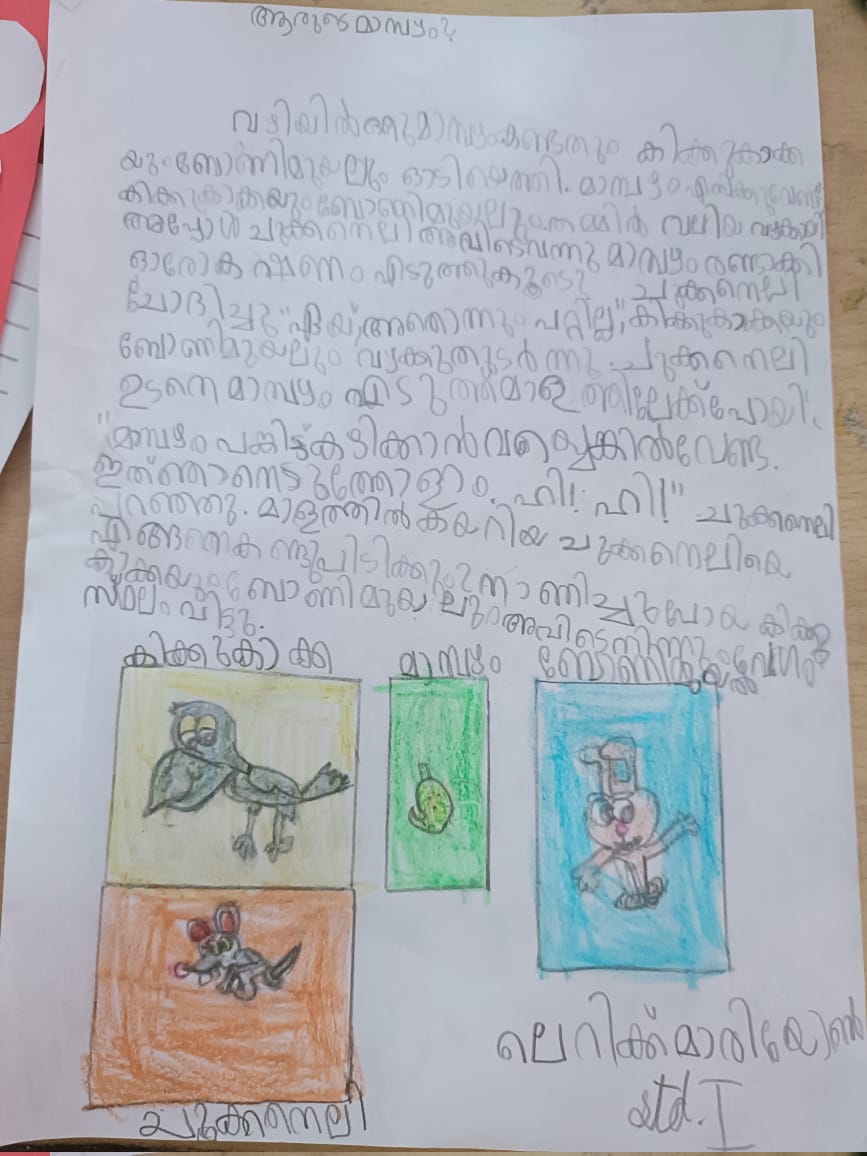 ആരുടെ മാമ്പഴം?
വഴിയിൽ ഒരു മാമ്പഴം കണ്ടതും കിക്കുകാക്ക
യും ബോണിമുയലും ഓടിയെത്തി. മാമ്പഴം എനിക്കു വേണം
കിക്കുകാക്കയും ബോണിമുയലും തമ്മിൽ വലിയ വഴക്കായി
അപ്പോൾ ചുക്കനെലി അവിടെ വന്നു മാമ്പഴം രണ്ടാക്കി
ഓരോ കഷണം എടുത്തുകൂടെ? ചുക്കനെലി
ചോദിച്ചു "ഏയ്, അതൊന്നും പറ്റില്ല", കിക്കുകാക്കയും
ബോണിമുയലും വഴക്കു തുടർന്നു. ചുക്കനെലി
ഉടനെ മാമ്പഴം എടുത്ത് മാളത്തിലേക്ക് പോയി.
"മാമ്പഴം പങ്കിട്ട് കഴിക്കാൻ വയ്യെങ്കിൽ വേണ്ട.
ഇത് ഞാനെടുത്തോളാം. ഹി! ഹി!" ചുക്കനെലി
പറഞ്ഞു. മാളത്തിൽ കയറിയ ചുക്കനെലിയെ
എങ്ങനെ കണ്ടുപിടിക്കും? നാണിച്ചുപോയ കിക്കു
കാക്കയും ബോണിമുയലും അവിടെനിന്നും വേഗം
സ്ഥലം വിട്ടു.
കിക്കുകാക്ക മാമ്പഴം ബോണിമുയൽ
ചുക്കനെലി
ലെറിക്ക് മാരിയോൺ
std. I